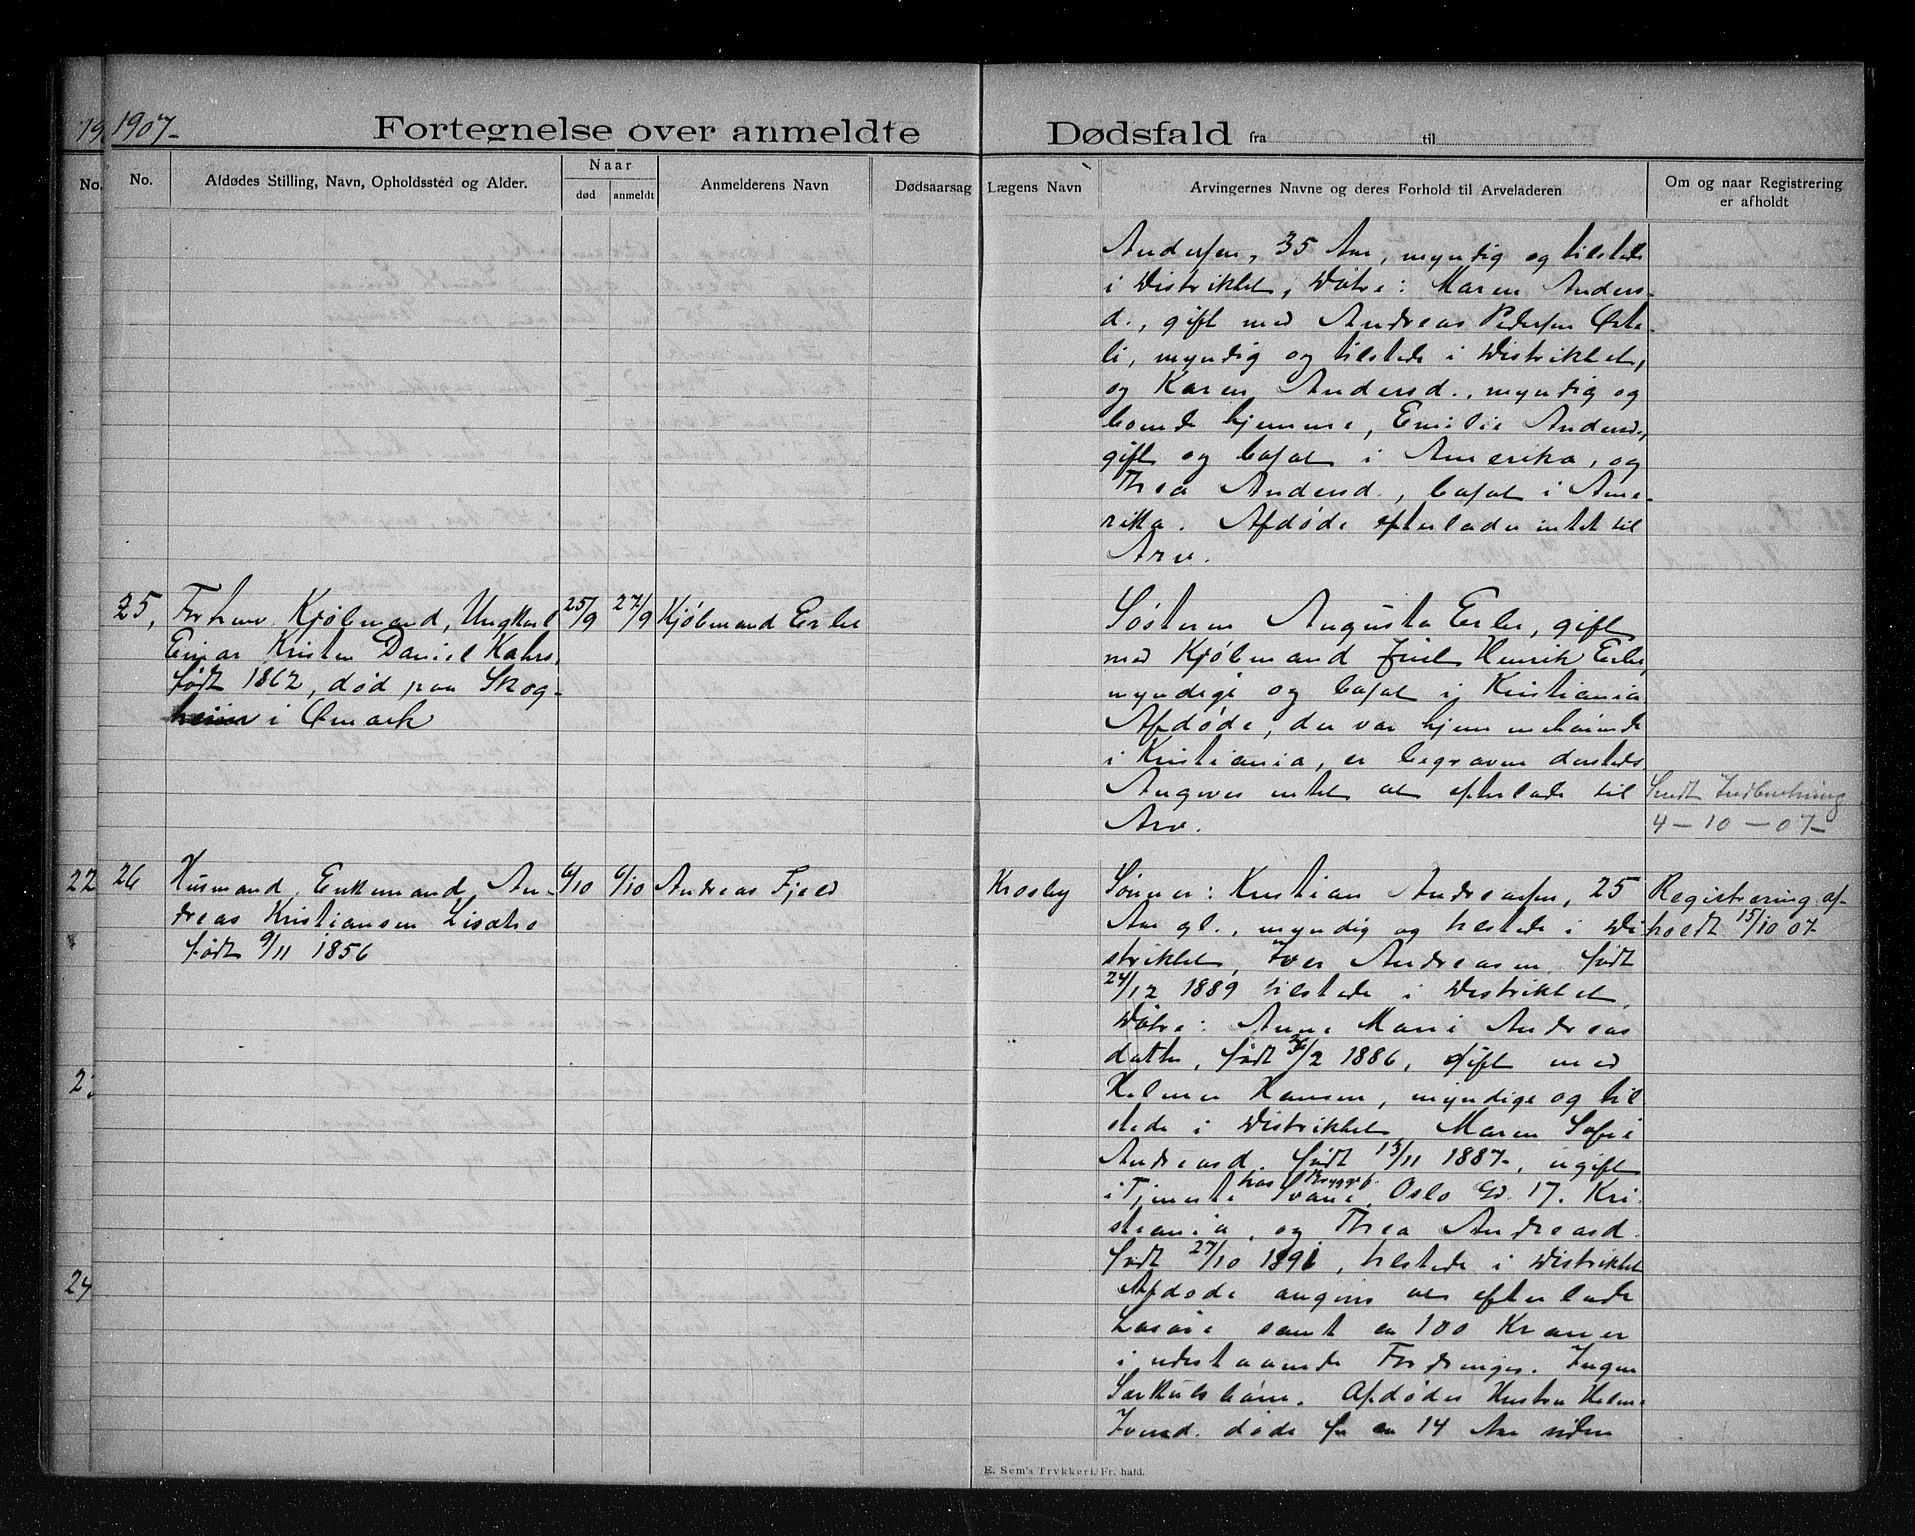 1907-
Fortegnelse over anmeldte Dødsfald fra til
No.
No.
Afdødes Stilling, Navn, Opholdssted og Alder.
Naar
død
anmeldt
Anmelderens Navn
Dødsaarsag
Lægens Navn
Arvingernes Navne og deres Forhold til Arveladeren
Om og naar Registrering
er afholdt
Andersen, 35 Aar, myndig og tilstede
i Distriktet, Døtre: Maren Anders-
d., gift med Andreas Pedersen Øste-
li, myndig og tilstede i Distriktet,
og Karen Andersd., myndig og
boende hjemme, Emilie Andersd.,
gift og bosat i Amerika, og
Thea Andersd., bosat i Ame-
rika. Afdøde efterlader intet til
Arv.
25,
Forhenv. Kjøbmand, Ungkarl
Einar Kristen Daniel Kahrs,
født 1862, død paa Skog-
heim i Ømark
25/9
27/9
Kjøbmand Erbe
Søsteren Augusta Erbe, gift
med Kjøbmand Juel Henrik Erbe,
myndige og bosat i Kristiania
Afdøde, der var hjemmehørende
i Kristiania, er begraven dersteds
Angives intet at efterlade til
Arv.
Sendt Indberetning
4-10-07-
22
26
Husmand, Enkemand, An-
dreas Kristiansen Lisæho
født 9/11 1856
6/10
6/10
Andreas Fjeld
Krosby
Sønner: Kristian Andreasen, 25
Aar gl., myndig og tilstede i Di
striktet, Iver Andreasen, født
24/12 1889 tilstede i Distriktet,
Døtre: Anne Marie Andreas
datter, født 26/2 1886, gift med
Helmer Hansen, myndige og til
stede i Distriktet, Maren Sofie
Andreasd. født 13/11 1887-, ugift
i Tjeneste hos Brygger Svane, Oslo Gd. 17. Kri
stiania, og Thea Andreasd.
født 27/10 1891, tilstede i Distriktet
Afdøde angives at efterlade
Løsøre samt ca 100 Kroner
i udestaaende Fordringer. Ingen
Særkulsbørn. Afdødes Hustru Helene
Iversd. døde for ca 14 Aar siden
Registrering af-
holdt 15/10 07
23
24
E. Sem's Trykkeri, Fr. hald.